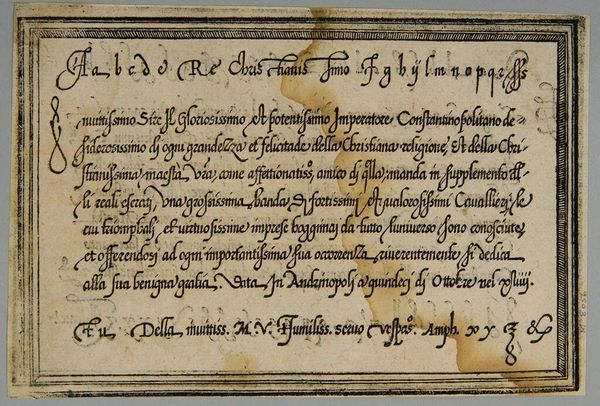 A a b c d e Re Chris Tianis Simo f g h y l m n o p q r ss s
nuittissimo Sire Il Gloriosissimo et potentissimo Imperatore Constantinopolitano de-
siderosissimo di ogni grandezza et felicitade della Christiana religione, Et della Chri-
stianissima maestà vra, come affettionatiss. amico di qlla, manda in supplemento
li reali eserciti, vna grossissima banda di fortissimi et valorosissimi Cauallieri, le
cui triomphali et virtuosissime imprese hoggimai da tutto l'uniuerso sono conosciute,
et offerendosi ad ogni importantissima sua occorrenza riuerentemente si dedica
alla sua benigna gratia. Data In Andrinopoli a quindeci di Ottobre nel xliiij.
t u Della inuittiss. M. V. Humiliss. seruo Vespas. Amph. x y z &